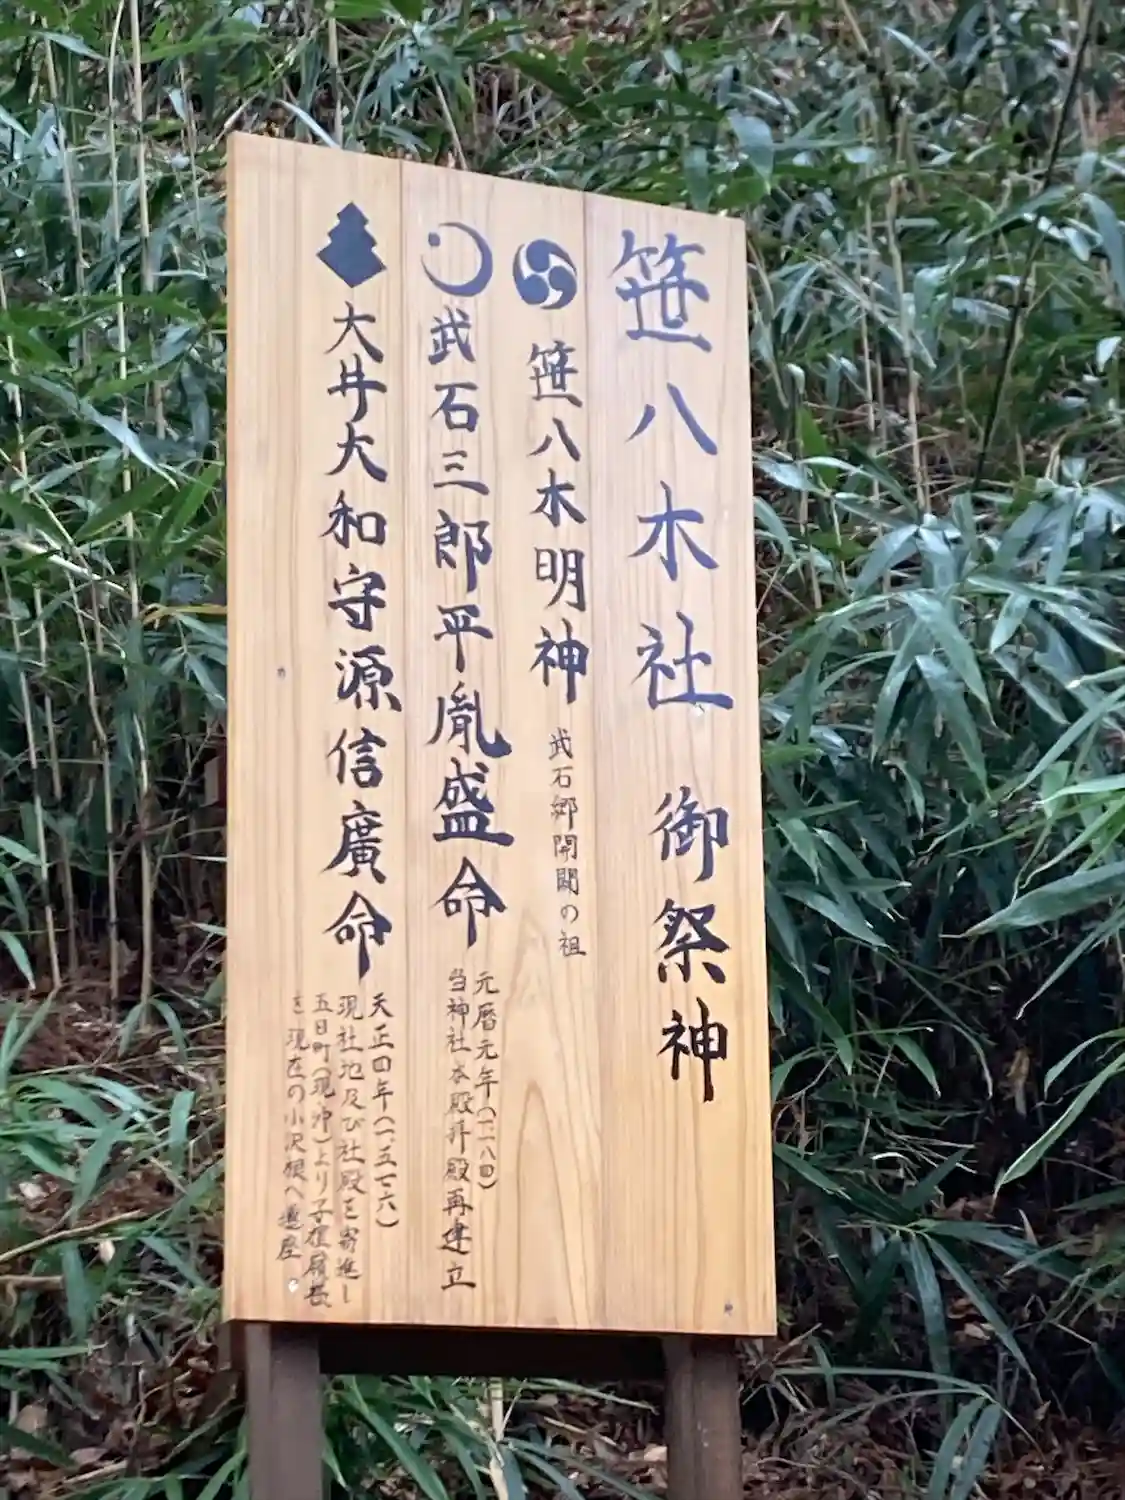 笹八木社 御祭神
笹八木明神 武石郷開闢の祖
武石三郎平胤盛命
元暦元年(一一八四)
当神社本殿拝殿再建立
大井大和守源信廣命
天正四年(一五七六)
現社地及び社殿を寄進し
五日町(現沖)より子檀嶺岳
を現在の小沢根へ遷座